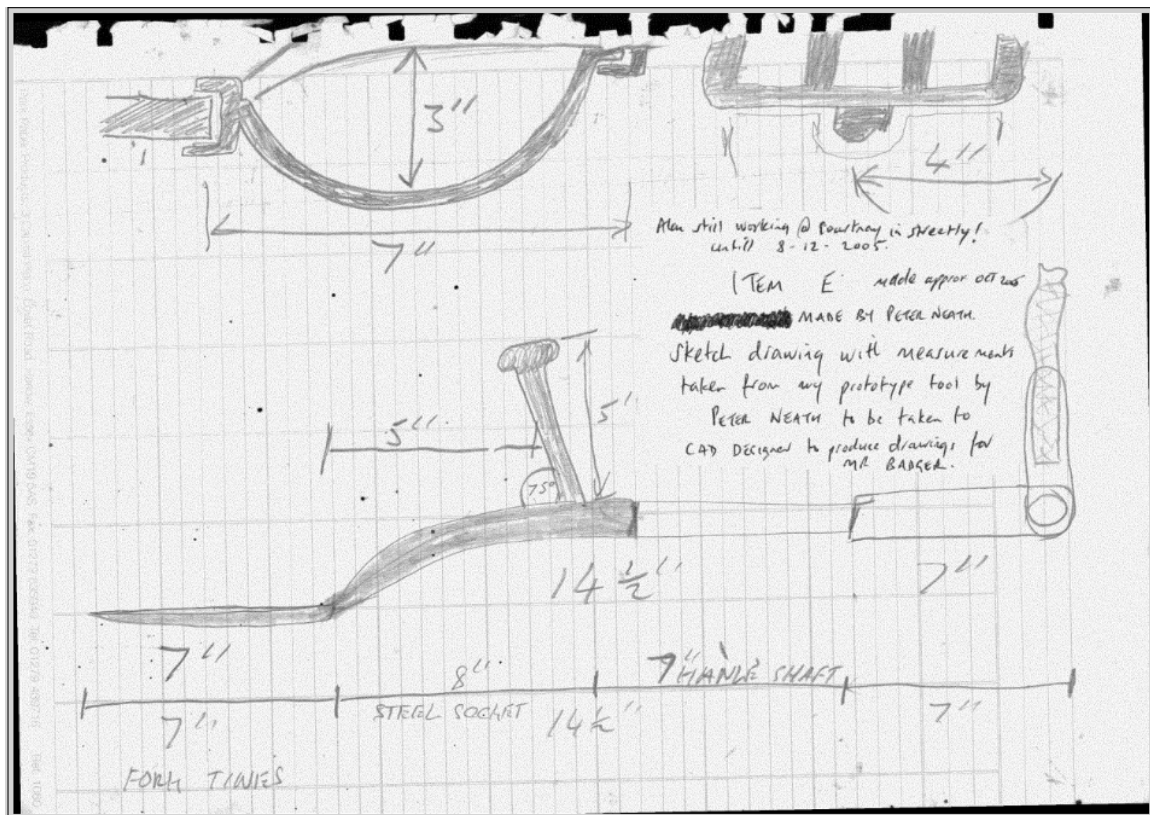 3"
7"
4"
Alan still working @
in streetly!
untill 8-12-2005.
ITEM E made approx OCT
MADE BY PETER NEATH.
Sketch drawing with measurements
taken from my prototype tool by
PETER NEATH to be taken to
CAD DESIGNER to produce drawings for
MR BADGER.
5"
5'
75°
14 ½"
7"
7"
8"
7" HANLE SHAFT
STEEL SOCKET
7"
14 ½"
7"
FORK TINES